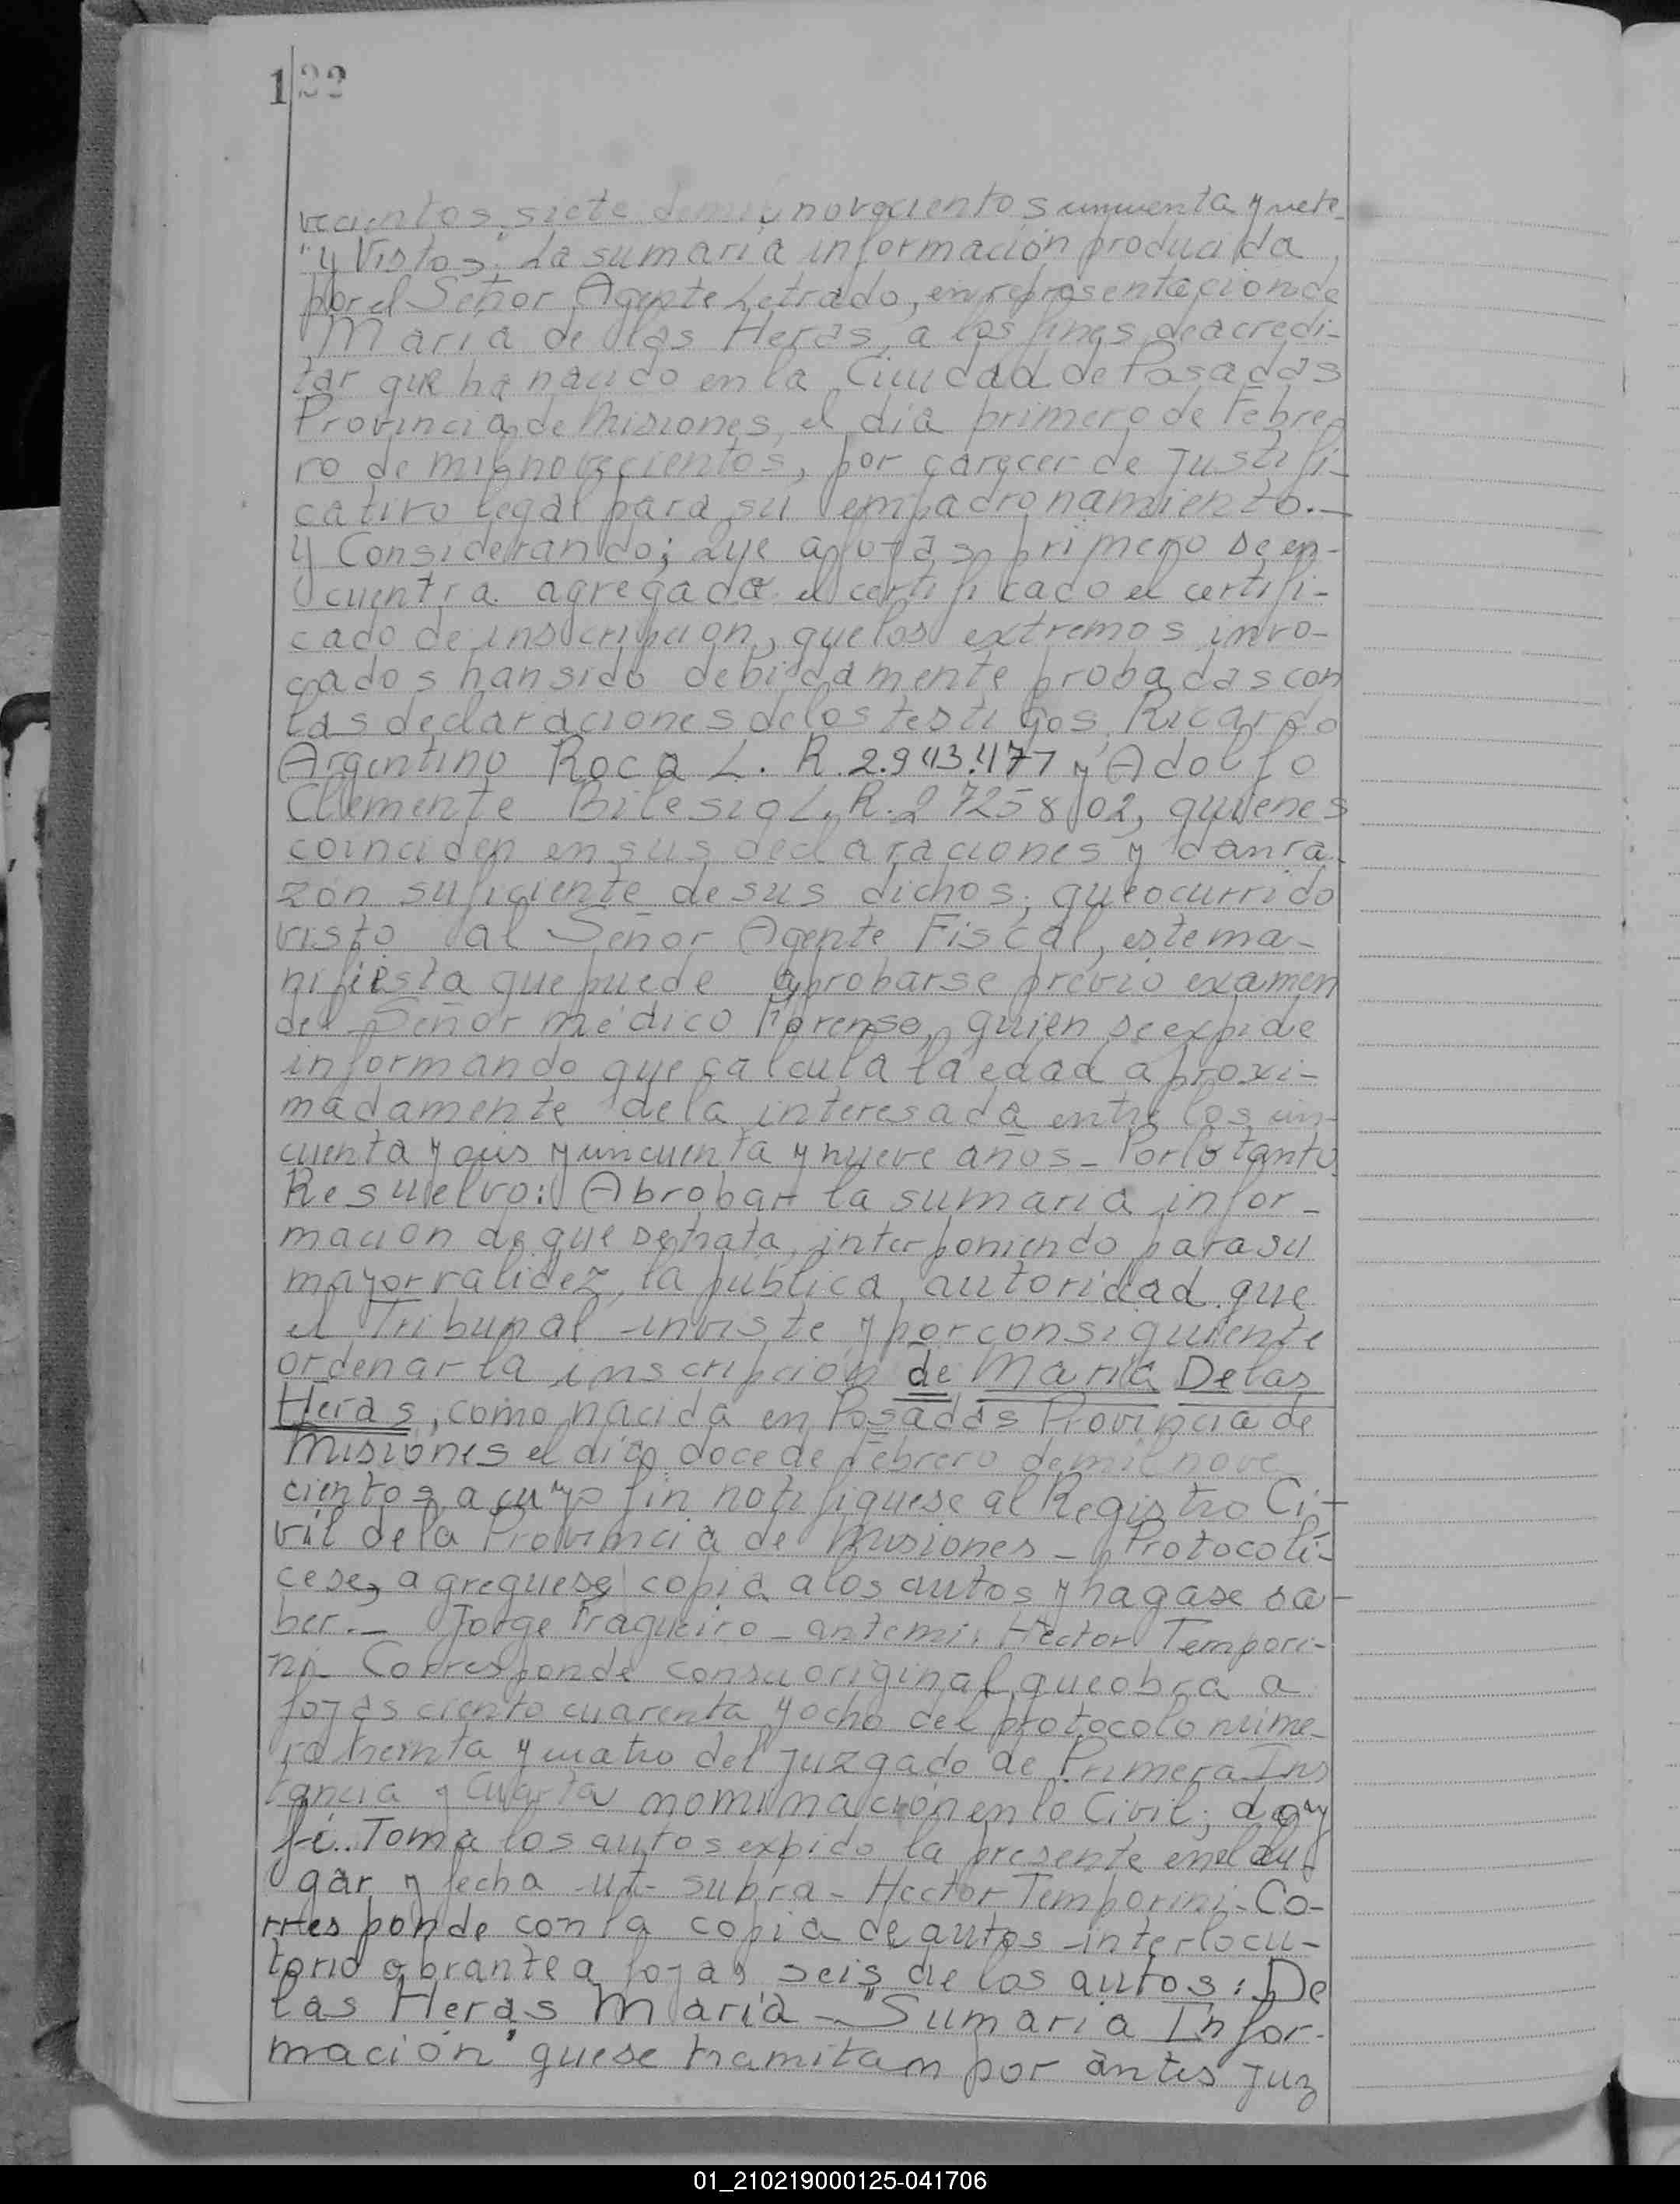 132
vecientos siete de mil novecientos cincuenta y siete
"y Vistos": La sumaria información producida
por el Señor Agente Letrado, en representacion de
Maria de las Heras, a los fines de acredi-
tar que ha nacido en la Ciudad de Posadas
Provincia de Misiones, el dia primero de Febre
ro de mil novecientos, por carecer de justifi-
cativo legal para su empadronamiento.-
y Considerando; Que a fojas primero se en-
cuentra agregada el certificado el certifi-
cado de inscripcion, que los extremos invo-
cados han sido debidamente probadas con
las declaraciones de los testigos, Ricardo
Argentino Roca L. R. 2.943.477 y Adolfo
Clemente Bilesio L. R. 2 725 802, quienes
coinciden en sus declaraciones y dan ra-
zón suficiente de sus dichos; que ocurrido
visto al Señor Agente Fiscal, este ma-
nifiesta que puede aprobarse previo examen
del Señor médico Forense, quien se expide
informando que calcula la edad aproxi-
madamente de la interesada entre los cin-
cuenta y seis y cincuenta y nueve años - Por lo tanto
Resuelvo: Abrobar la sumaria infor-
macion de que se trata, interponiendo para su
mayor validez, la publica autoridad que
el Tribunal inviste y por consiguiente
ordenar la inscripción de Maria De las
Heras, como nacida en Posadas Provincia de
Misiones el dia doce de Febrero de mil nove
cientos a cuyo fin notifiquese al Registro Ci-
vil de la Provincia de Misiones - Protocoli-
cese, agreguese copia a los autos y hagase sa-
ber.- Jorge Fragueiro - antemi: Hector Tempori-
ni- Corresponde con su original que obra a
fojas ciento cuarenta y ocho del protocolo nume-
ro treinta y cuatro del juzgado de Primera Ins
tancia y Cuarta nominación en lo Civil; doy
fé. Toma los autos expido la presente en el lu-
gar y fecha ut supra - Hector Temporini - Co-
rresponde con la copia de autos interlocu-
torio obrante a fojas seis de los autos: De
las Heras Maria - "Sumaria Infor-
mación" que se tramitan por antes juz
01_210219000125-041706